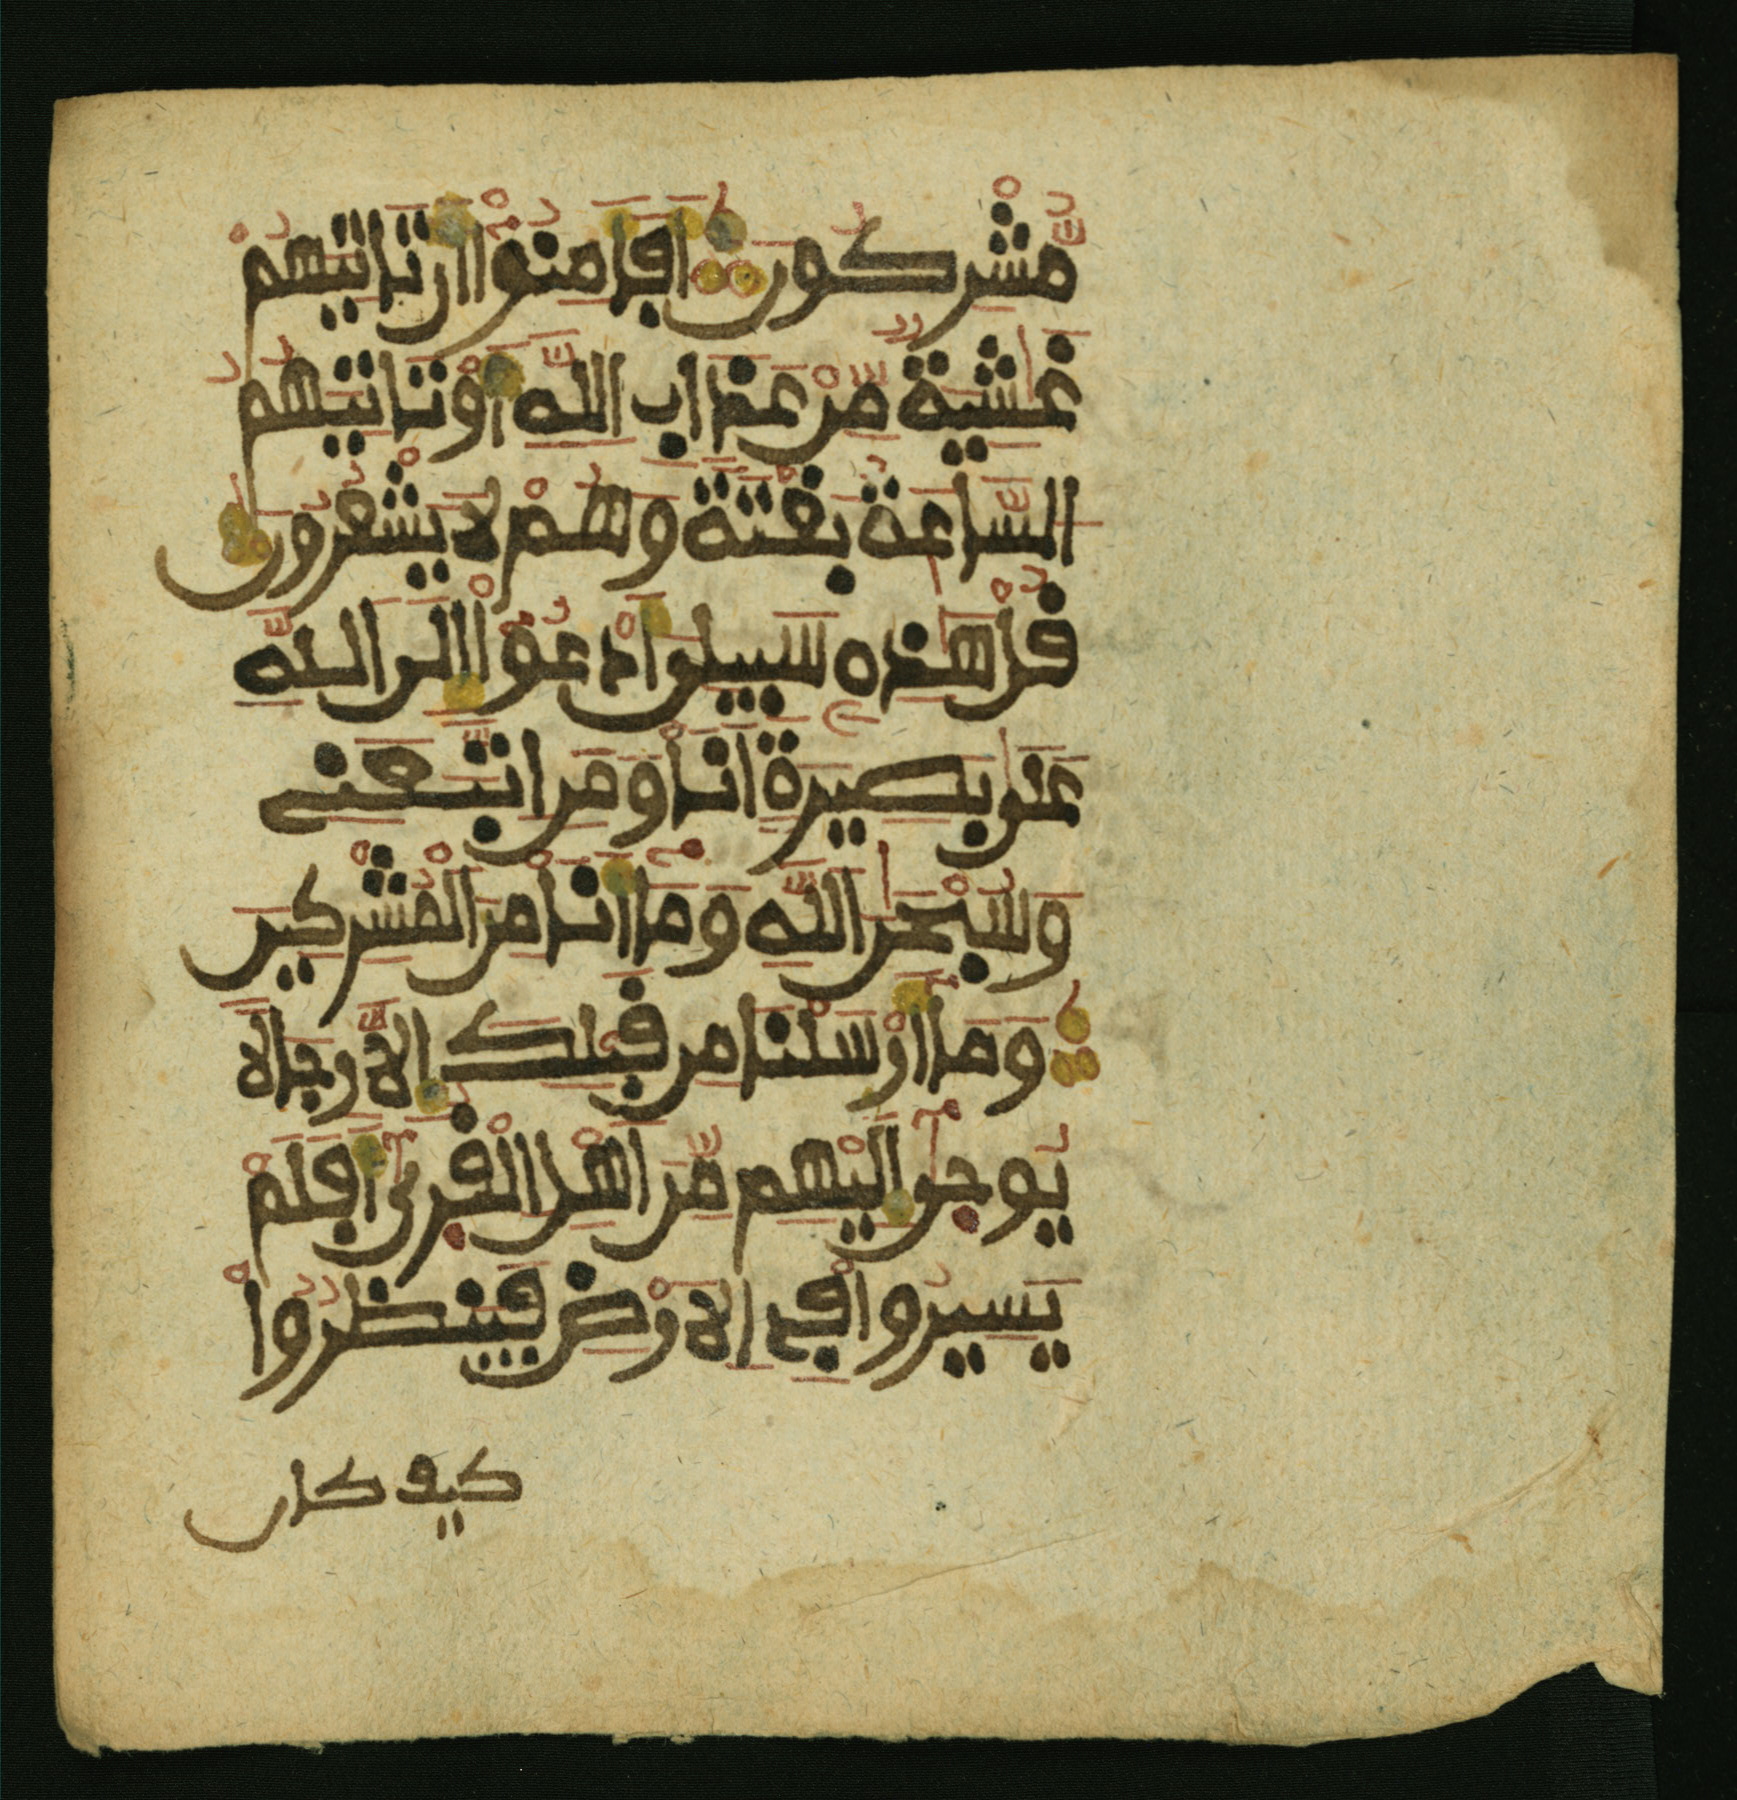 مُّشْرِكُونَ أَفَأَمِنُوٓاْ أَن تَأْتِيَهُمْ
غَٰشِيَةٌ مِّنْ عَذَابِ اللَّهِ أَوْ تَأْتِيَهُمُ
السَّاعَةُ بَغْتَةً وَهُمْ لَا يَشْعُرُونَ
قُلْ هَٰذِهِۦ سَبِيلِى أَدْعُوٓاْ إِلَى اللَّهِ
عَلَىٰ بَصِيرَةٍ أَنَا۠ وَمَنِ اتَّبَعَنِے
وَسُبْحَٰنَ اللَّهِ وَمَآ أَنَا۠ مِنَ الْمُشْرِكِينَ
وَمَآ أَرْسَلْنَا مِن قَبْلِكَ إِلَّا رِجَالًا
يُوحَىٰٓ إِلَيْهِم مِّنْ أَهْلِ الْقُرَىٰٓ أَفَلَمْ
يَسِيرُواْ فِے الْأَرْضِ فَيَنظُرُواْ
كيف كان